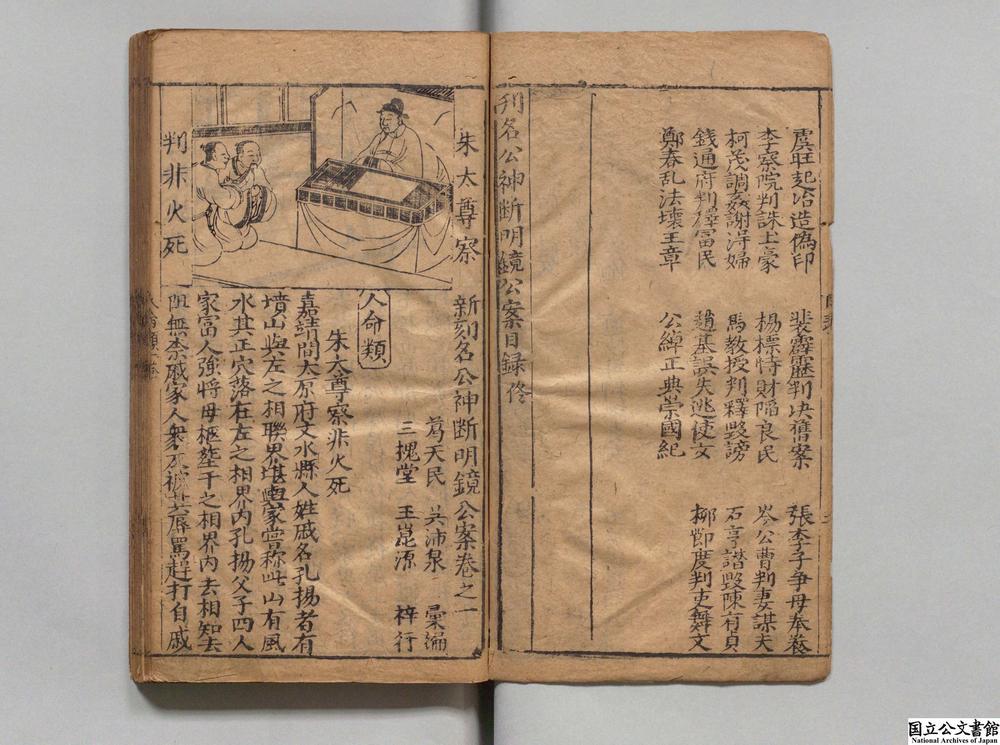 虞旺起冶造偽印 裴霹靂判决舊案 張李子爭母奉養
李察院判誅土豪 楊標恃財陷良民 岑公曹判妻謀夫
柯茂調姦謝淂婦 馬教授判釋毀謗 石亨譖毀陳有貞
錢通府判釋冨民 趙基誤失逃使女 柳節度判吏舞文
鄭春乱法壞王章 公縡正典崇國紀
刊名公神断明鏡公案目録終
朱太尊察
判非火死
新刻名公神断明鏡公案卷之一
葛天民 吳沛泉 彚編
三槐堂 王崑源 梓行
人命類
朱太尊察非火死
嘉靖間太原府文水縣人姓戚名孔揚者有
墳山與左之相聯界堪輿家嘗称此山有風
水其正穴落在左之相界内孔揚父子四人
家富人強將母柩塟于之相界内去相知去
阻無柰戚家人衆反被其辱罵趕打自戚
国立公文書館
National Archives of Japan